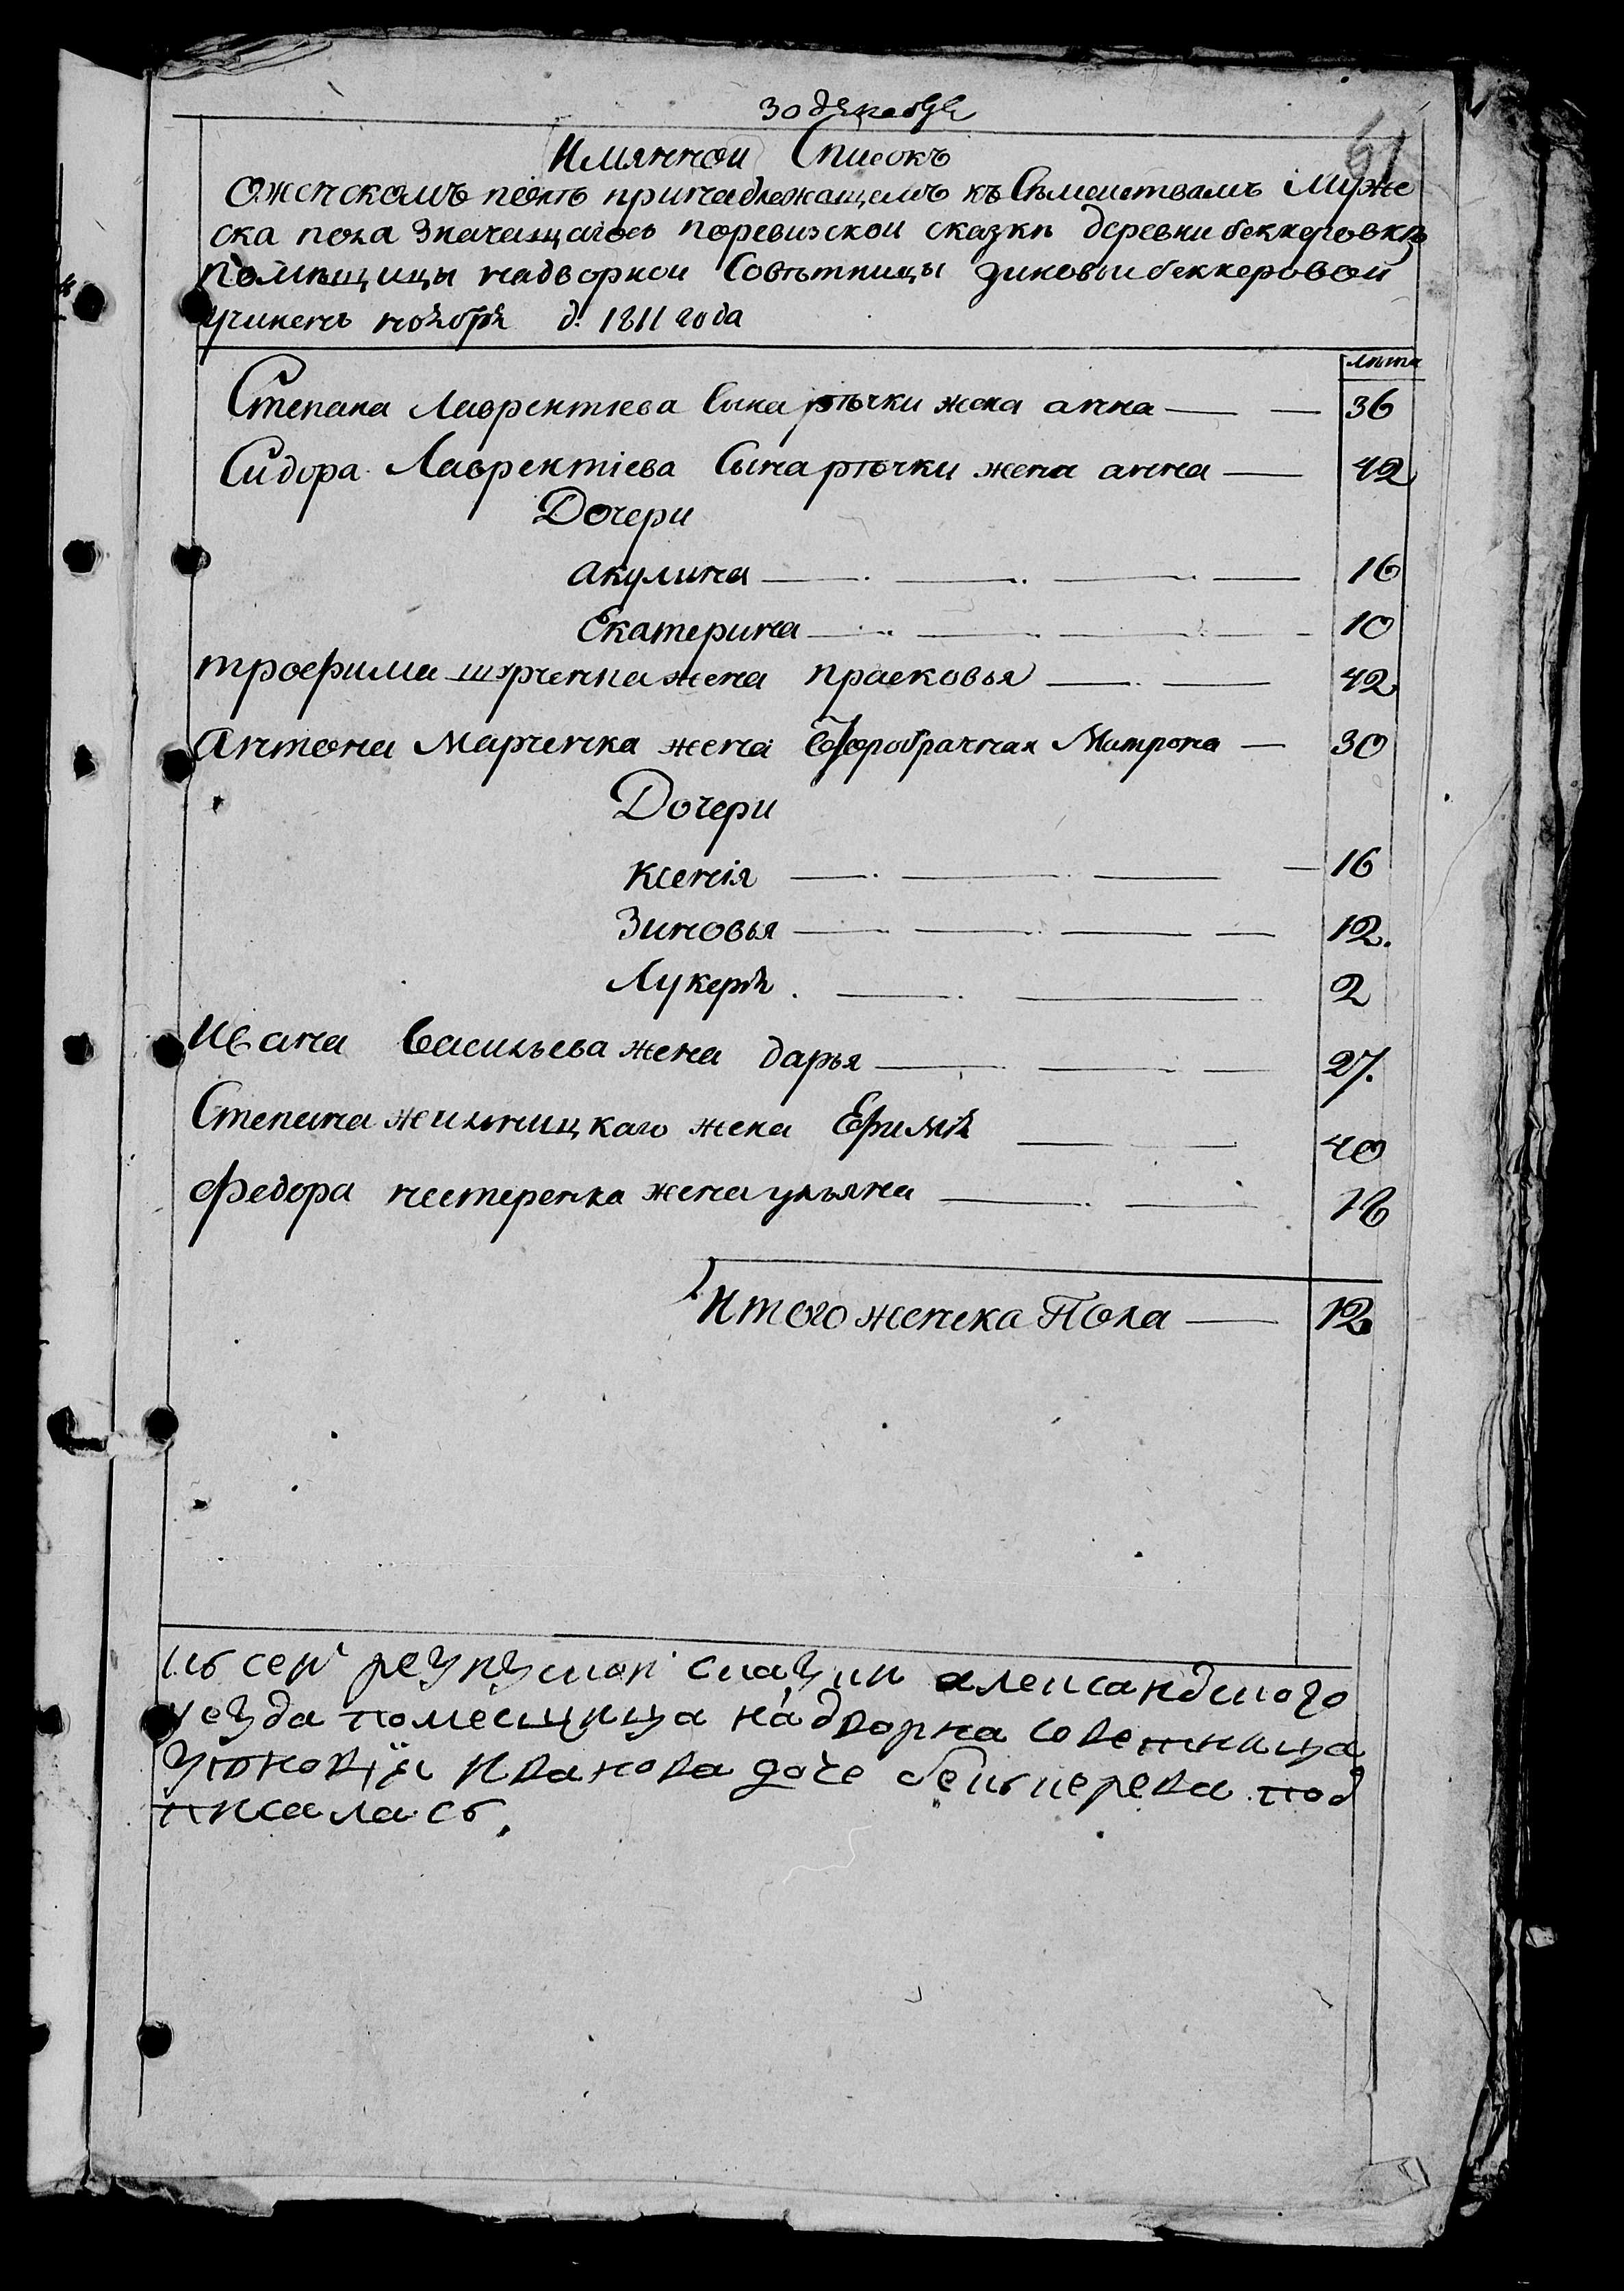 30 декабря
61
Имянной Списокъ
оженскомъ полѣ принадлежащемъ къ Сѣмеиствамъ Муже
ска пола значащагось поревизской сказкѣ деревни беккеровки
помѣщицы надворной Совѣтницы зиновьи беккеровой
учиненъ ноября д. 1811 года
лѣта
Степана Лаврентіева Сына рѣчки жена анна 36
Сидора Лаврентіева Сына рѣчки жена анна 42
Дочери
акулина 16
Екатерина 10
трофима жена прасковья 42
антона Марченка жена второбрачная Митрона 30
Дочери
Ксенія 16
Зиновья 12.
Лукерія 2
Ивана Васильева жена дарья 27.
Степана жилницкаго жена Ефимія 40
федора нестеренка жена ульяна 18
Итого женска Пола 12
къ сей сказки александского
уезда помесщица надворна советница
зіоновія Иванова доче бекьперева под
писалась.